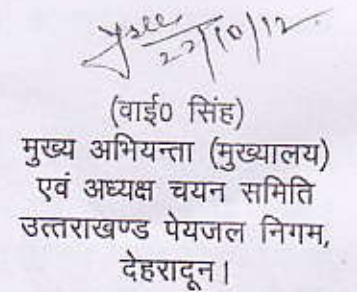 22/10/12
(वाई0 सिंह)
मुख्य अभियन्ता (मुख्यालय)
एवं अध्यक्ष चयन समिति
उत्तराखण्ड पेयजल निगम,
देहरादून।